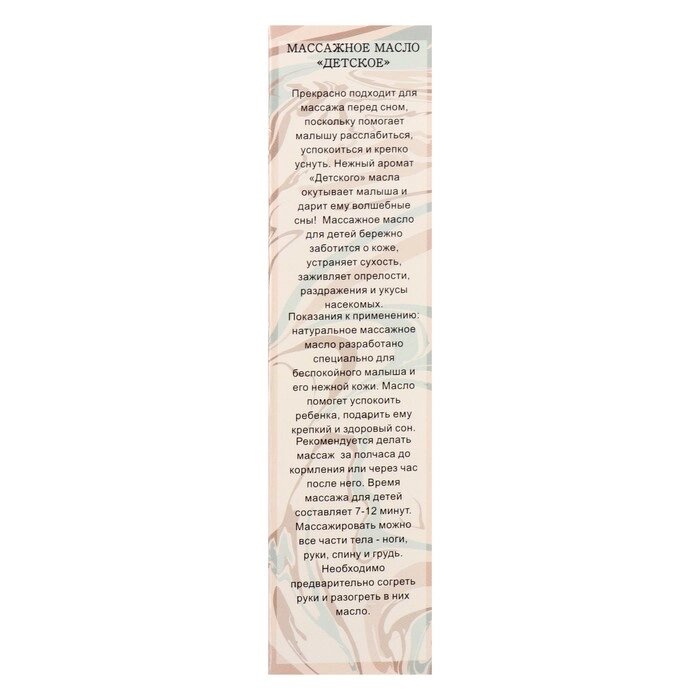 МАССАЖНОЕ МАСЛО
«ДЕТСКОЕ»
Прекрасно подходит для
массажа перед сном,
поскольку помогает
малышу расслабиться,
успокоиться и крепко
уснуть. Нежный аромат
«Детского» масла
окутывает малыша и
дарит ему волшебные
сны! Массажное масло
для детей бережно
заботится о коже,
устраняет сухость,
заживляет опрелости,
раздражения и укусы
насекомых.
Показания к применению:
натуральное массажное
масло разработано
специально для
беспокойного малыша и
его нежной кожи. Масло
помогет успокоить
ребенка, подарить ему
крепкий и здоровый сон.
Рекомендуется делать
массаж за полчаса до
кормления или через час
после него. Время
массажа для детей
составляет 7-12 минут.
Массажировать можно
все части тела - ноги,
руки, спину и грудь.
Необходимо
предварительно согреть
руки и разогреть в них
масло.